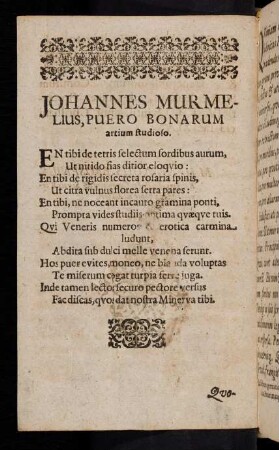 JOHANNES MURME-
LIUS, PUERO BONARUM
artium studioso.
EN tibi de tetris selectum sordibus aurum,
Ut nitido fias ditior eloquio:
En tibi de rigidis secreta rosaria spinis,
Ut citra vulnus florea serta pares:
En tibi, ne noceant incauto gramina ponti,
Prompta vides studiis optima quæque tuis.
Qui Veneris numeros & erotica carmina
ludunt,
Abdita sub dulci melle venena ferunt.
Hos puer evites, moneo, ne blanda voluptas
Te miserum cogat turpia ferre juga.
Inde tamen lectos securo pectore versus
Fac discas, quos dat nostra Minerva tibi.
Quo-